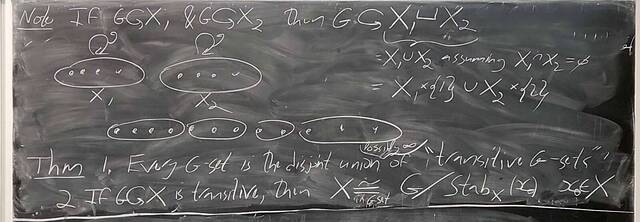 Note If G↺X₁ & G↺X₂ then G↺ X₁⊔X₂
= X₁∪X₂ assuming X₁∩X₂=∅
= X₁×{1} ∪ X₂×{2}
X₁ X₂
possibly ∞
Thm 1. Every G-set is the disjoint union of "transitive G-sets"
2 If G↺X is transitive, then X ≅ G/Stab_X(x₀) x₀∈X
in G-set